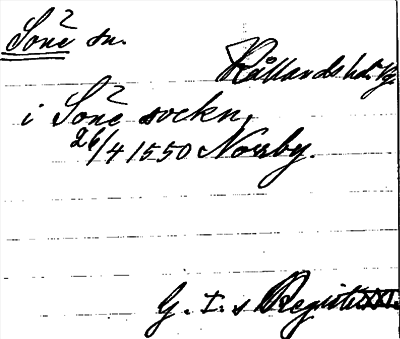 Sone sn.
Kållands hd. Vg
i Sone sockn,
26/4 1550 Norrby.
G. I. s Registr. XXI.